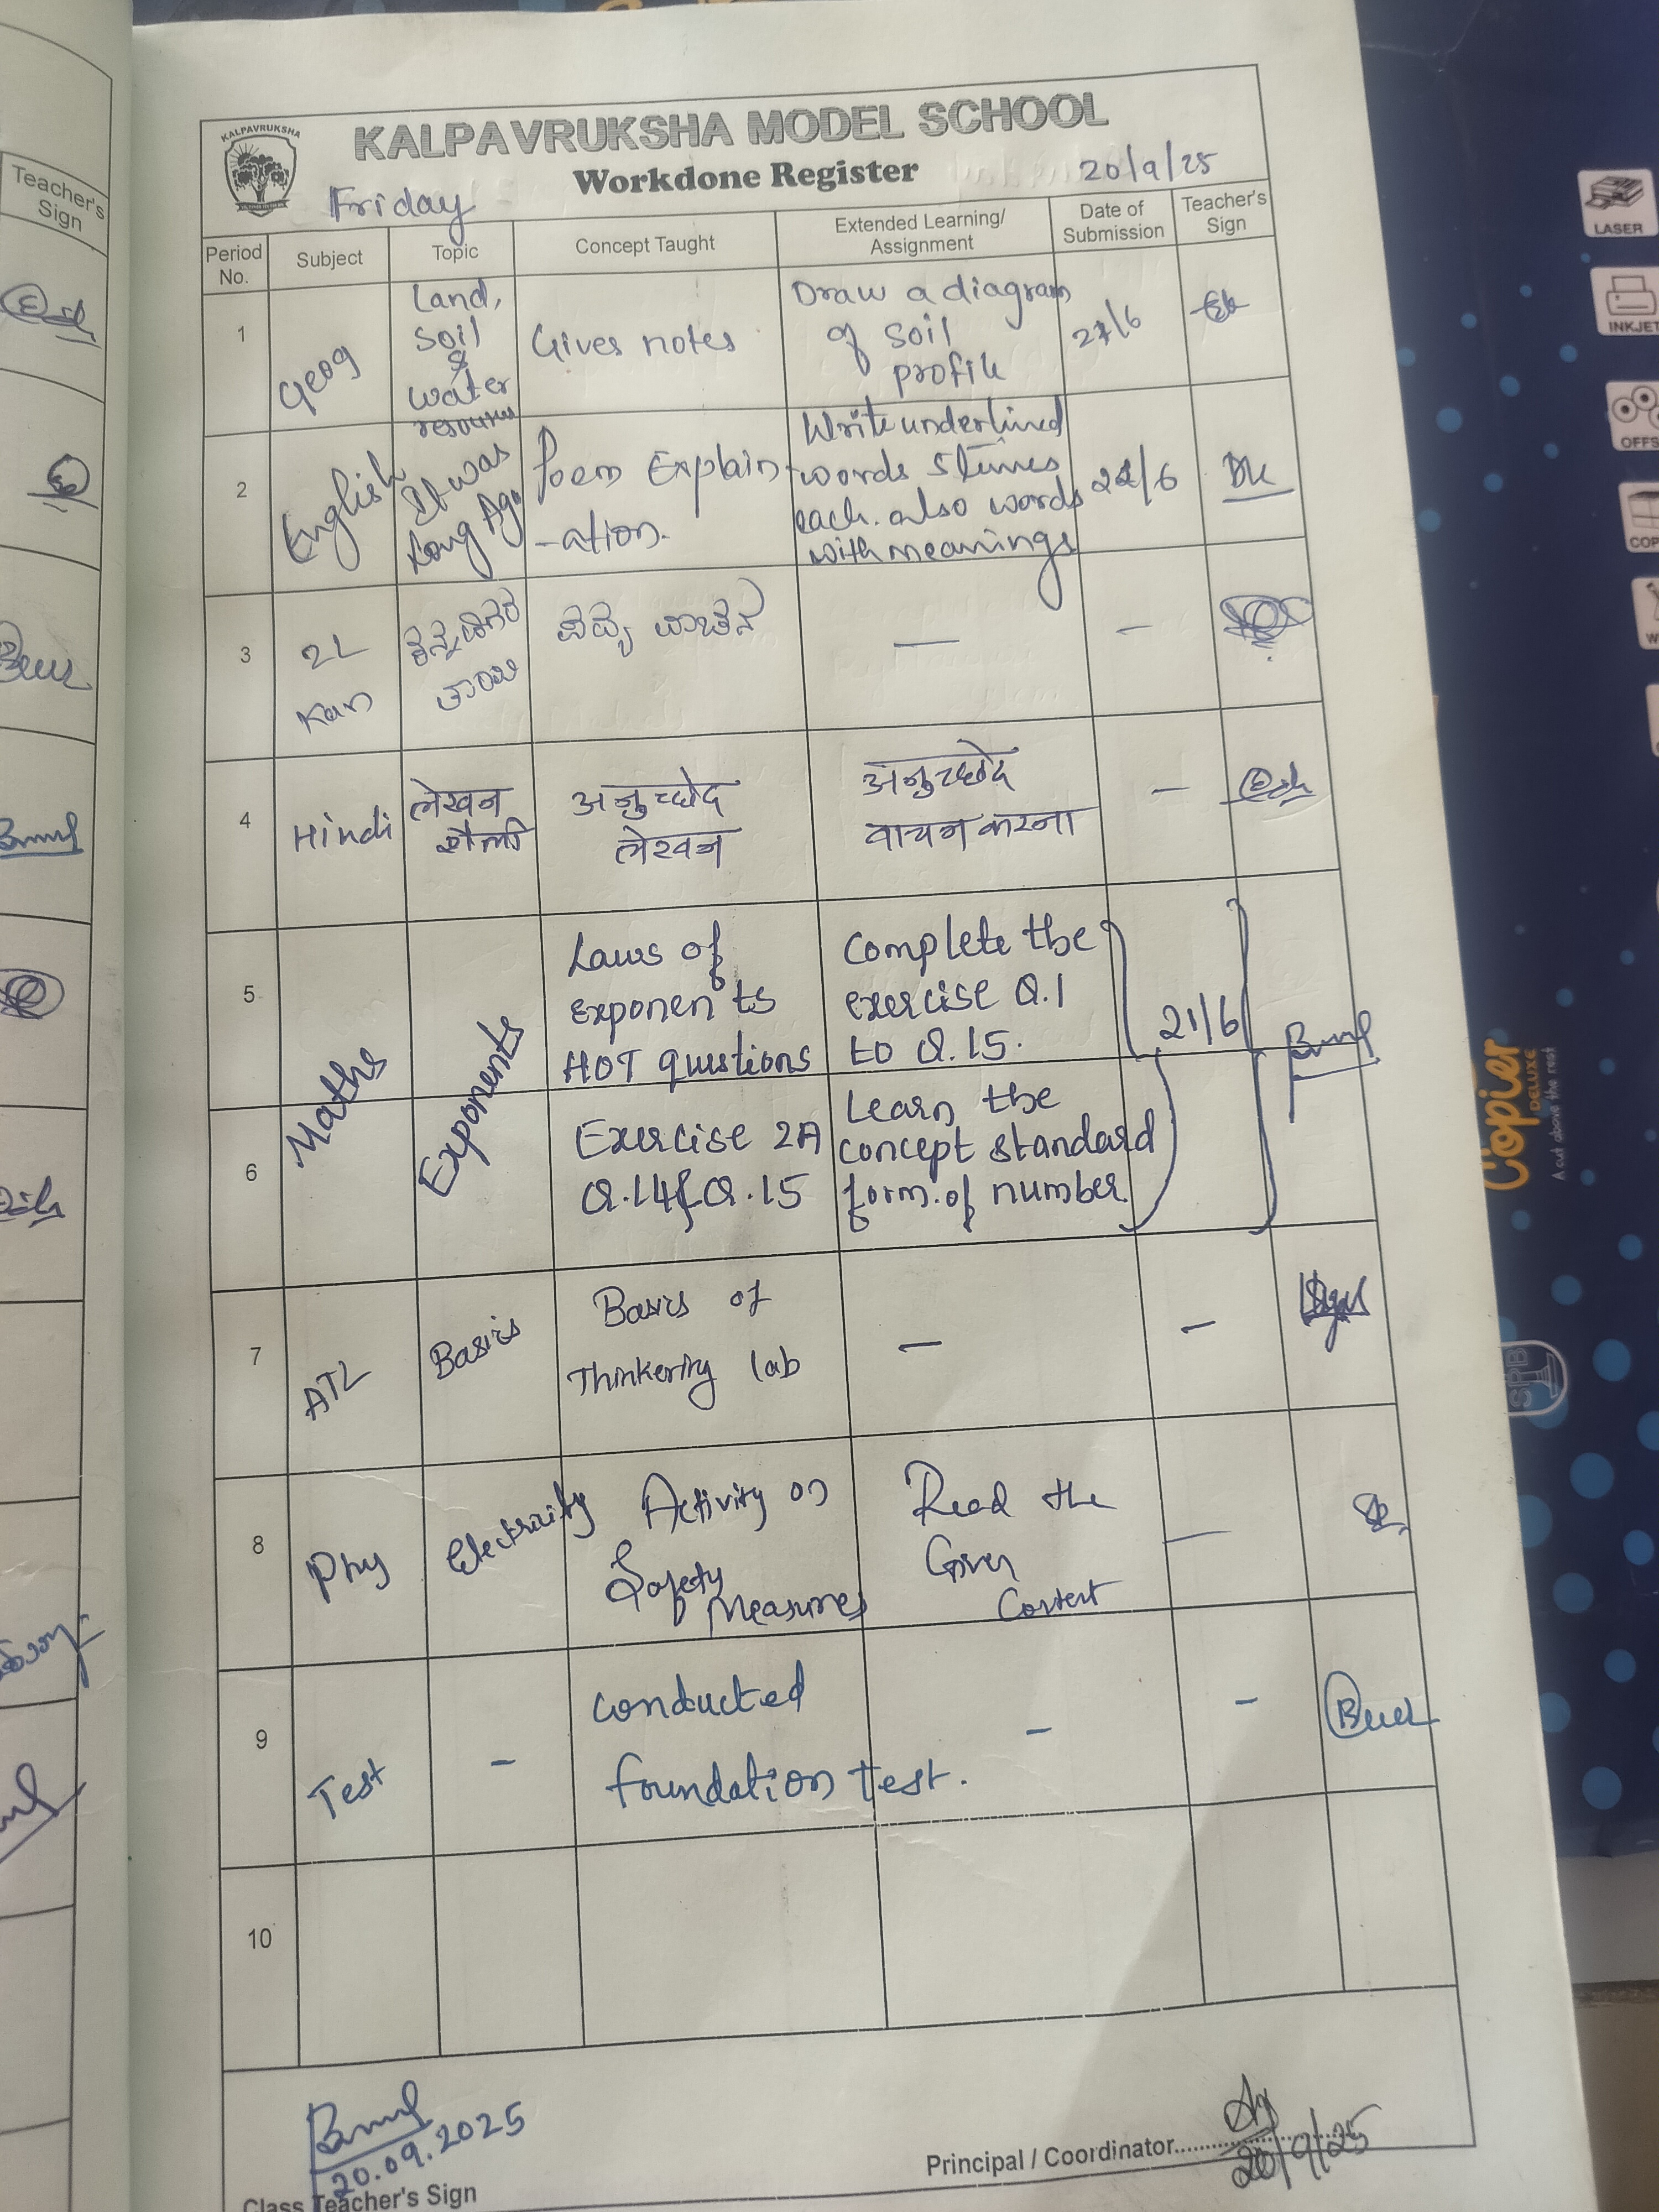 KALPAVRUKSHA
KALPAVRUKSHA MODEL SCHOOL
Workdone Register
Friday
20/9/25
Period No.
Subject
Topic
Concept Taught
Extended Learning/
Assignment
Date of
Submission
Teacher's
Sign
1
Geog
Land,
Soil
&
water
resources
Gives notes
Draw a diagram
of soil
profile
27/6
2
English
It was
Long Ago
Poem Explain
-ation.
Write underlined
words 5 times
each. also words
with meanings
3
2L
Kan
—
—
4
Hindi
लेखन
शैली
अनुच्छेद
लेखन
अनुच्छेद
वाचन करना
—
5
Maths
Exponents
Laws of
exponents
HOT questions
Complete the
exercise Q.1
to Q.15.
21/6
6
Exercise 2A
Q.14 & Q.15
Learn the
concept standard
form of number
7
ATL
Basics
Basics of
Thinkering lab
—
—
8
Phy
Electricity
Activity on
Safety
Measures
Read the
Given
Content
—
9
Test
-
conducted
foundation test.
-
-
10
20.09.2025
Class Teacher's Sign
Principal / Coordinator
20/9/25
Teacher's
Sign
LASER
INKJET
Copier
DELUXE
A cut above the rest
SPB